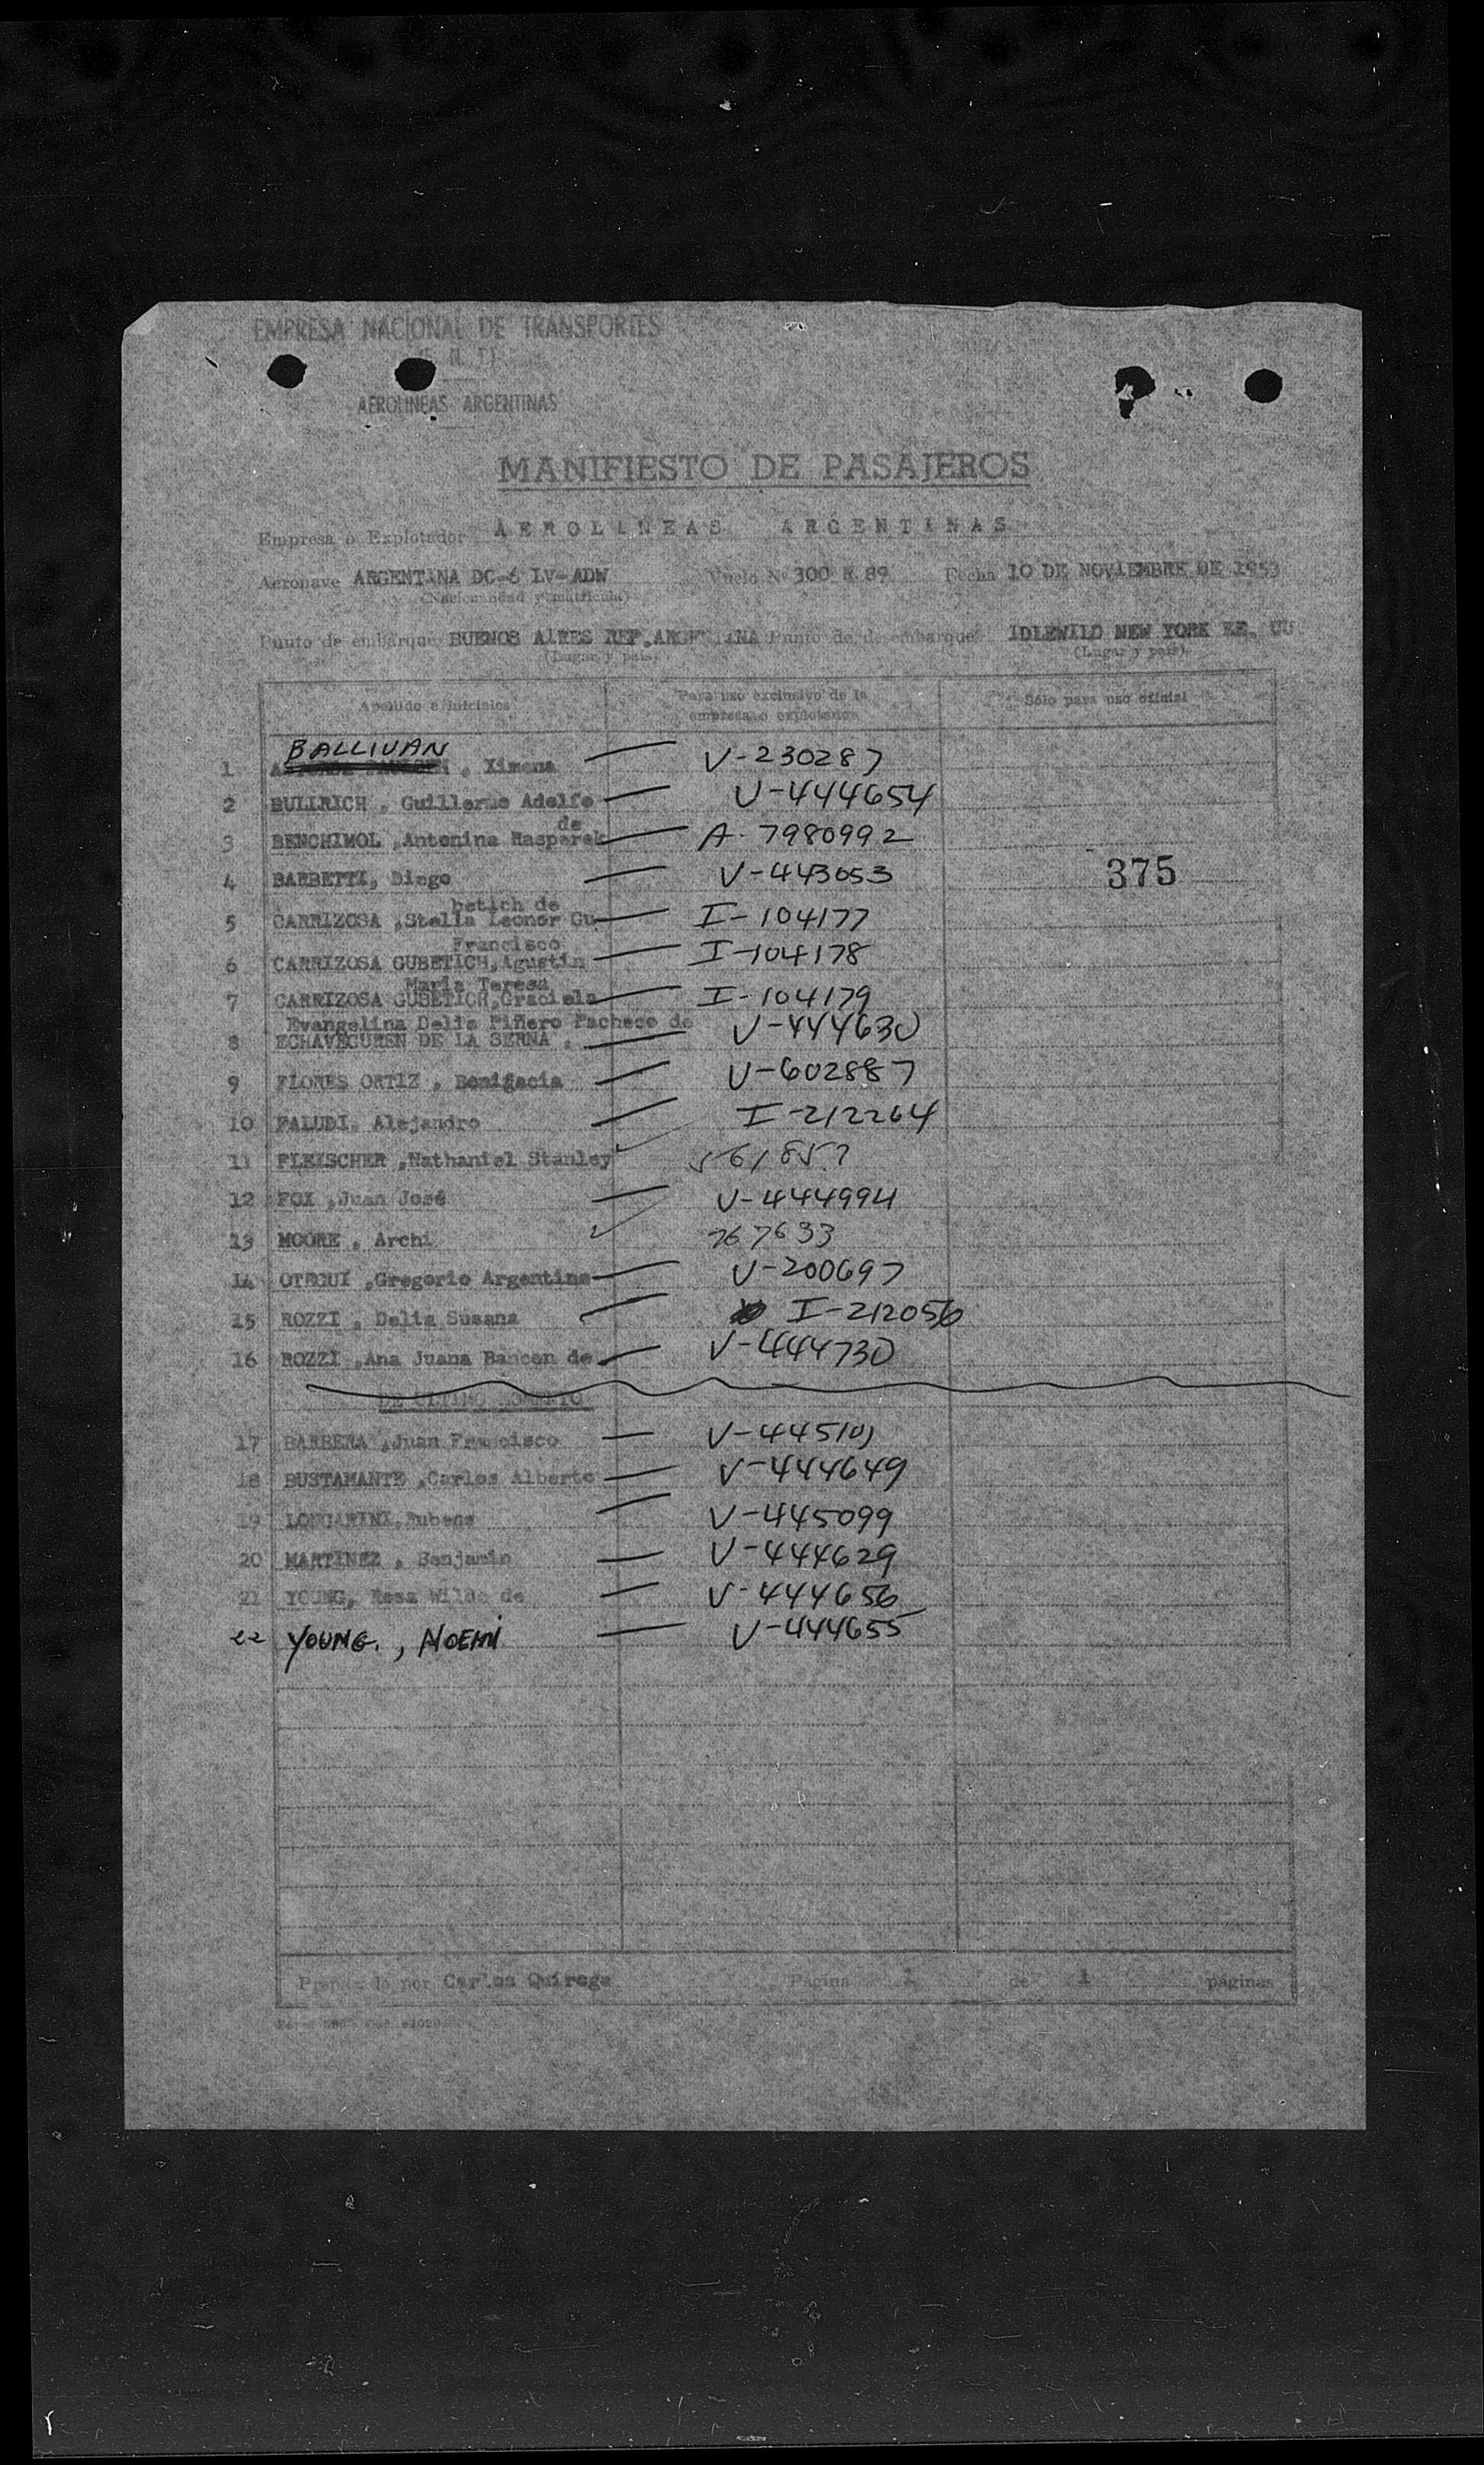 EMPRESA NACIONAL DE TRANSPORTES
AEROLINEAS ARGENTINAS
MANIFIESTO DE PASAJEROS
Empresa o Explotador AEROLINEAS ARGENTINAS
Aeronave ARGENTINA DC-6 LV-ADW Vuelo Nº 300 89 Fecha 10 DE NOVIEMBRE DE 1953
(Nacionalidad y matrícula)
Punto de embarque BUENOS AIRES REP. ARGENTINA Punto de desembarque IDLEWILD NEW YORK EE. UU
(Lugar y país) (Lugar y país)
Apellido e iniciales Para uso exclusivo de la empresa o explotador Sólo para uso oficial
BALLIVAN
1 , Ximena V-230287
2 BULLRICH , Guillermo Adolfo V-444654
de
3 BENCHIMOL ,Antonina Rasparek A-7980992
4 BARBETTI, Diego V-443053 375
betich de
5 CARRIZOSA ,Stella Leonor Gu I-104177
Francisco
6 CARRIZOSA GUBETICH,Agustin I-104178
Maria Teresa
7 CARRIZOSA GUBETICH,Graciela I-104179
Evangelina Delia Piñero Pacheco de
8 ECHAVEGUREN DE LA SERNA , V-444630
9 FLORES ORTIZ , Bonifacia V-602887
10 FALUDI, Alejandro I-212264
11 FLEISCHER ,Nathaniel Stanley 561857
12 FOX ,Juan José V-444994
13 MOORE , Archi 767633
14 OTEGUI ,Gregorio Argentino V-200697
15 ROZZI , Delia Susana I-212056
16 ROZZI ,Ana Juana Bancon de V-444730
DE ULTIMO MOMENTO
17 BARRERA ,Juan Francisco V-445101
18 BUSTAMANTE ,Carlos Alberto V-444649
19 LONGARINI,Rubens V-445099
20 MARTINEZ , Benjamin V-444629
21 YOUNG, Rosa Wilde de V-444656
22 YOUNG., NOEMI V-444655
Preparado por Carlos Quiroga Página de 1 páginas